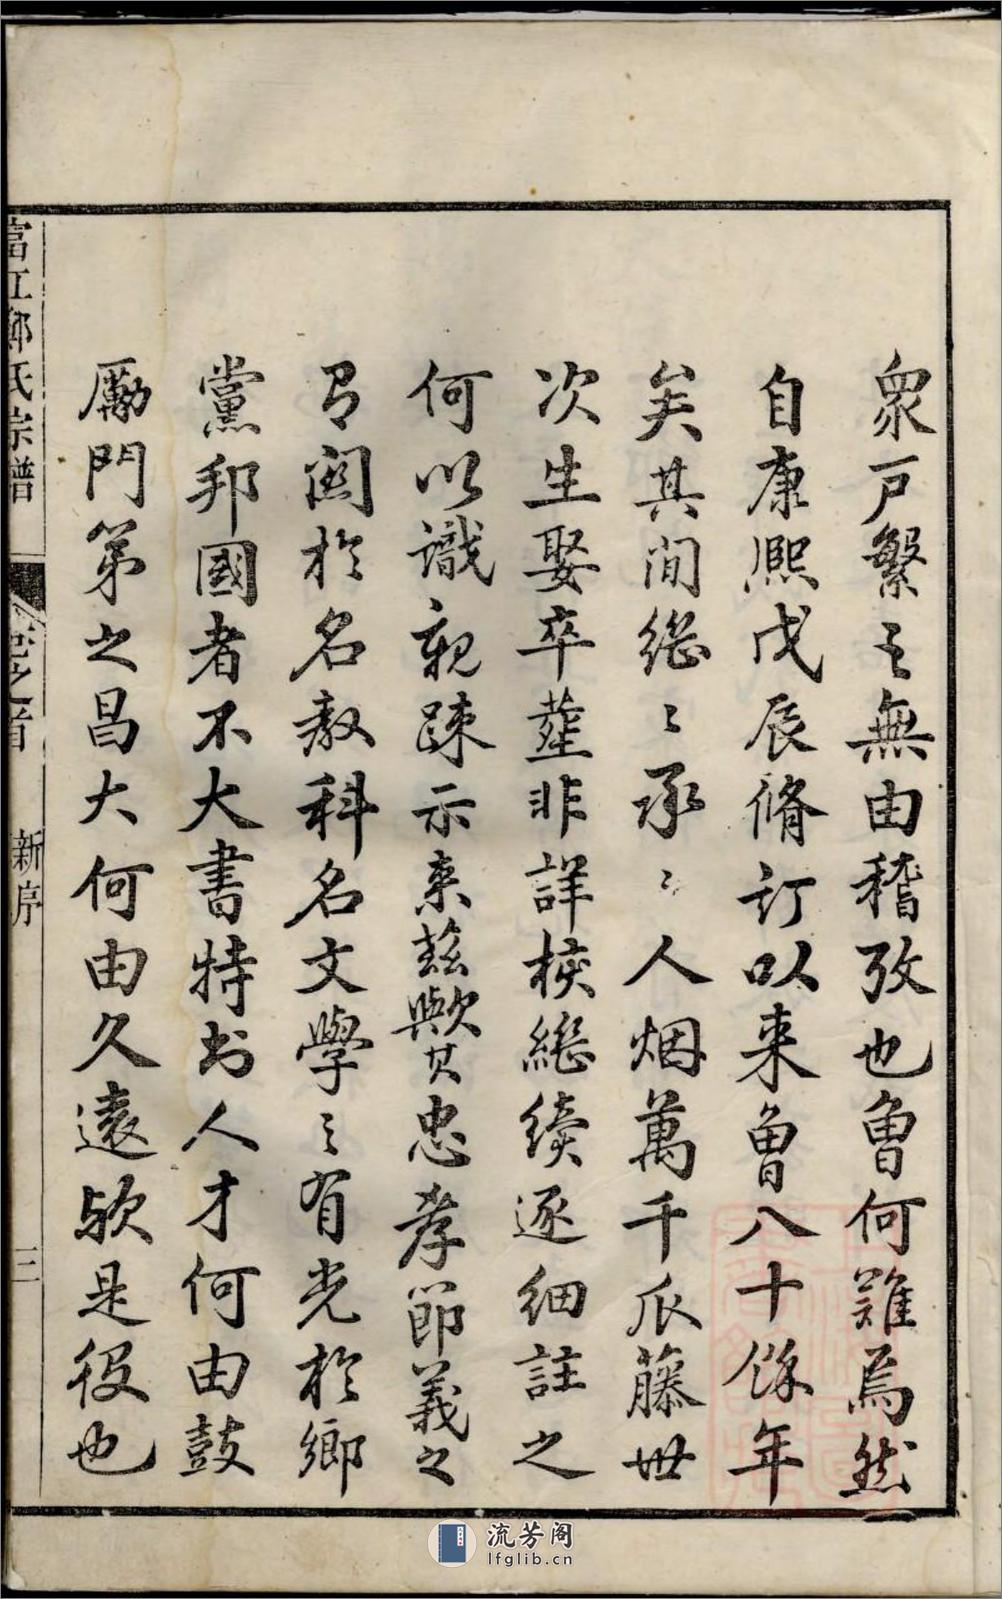 衆戸繁之無由稽攷也曾何難焉然
自康熙戊辰脩訂以来曾八十餘年
矣其間継〻承〻人烟萬千瓜藤世
次生娶卒塟非詳核継續逐細註之
何以識親踈示来兹歟其忠孝節義之
有関於名教科名文學之有光於鄉
黨邦國者不大書特书人才何由鼓
勵門第之昌大何由久遠欤是役也
富江鄭氏宗譜
卷之首
新序
三
流芳阁
lfglib.cn